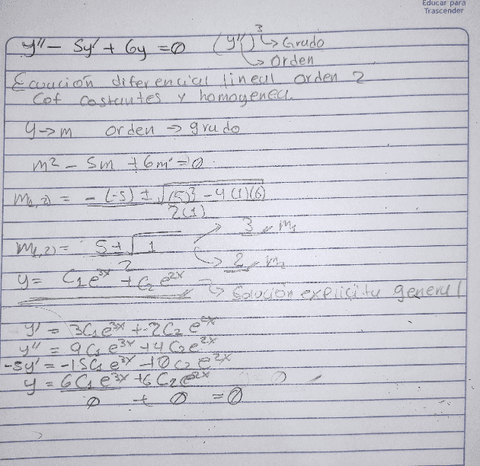 Educar para
Trascender
y'' - 5y' + 6y = 0 (y'')³ → Grado
→ Orden
Ecuación diferencial lineal orden 2
Cof costantes y homogenea.
y → m orden → grado
m² - 5m + 6m° = 0
m₁,₂) = -(-5) ± √(5)² - 4(1)(6)
2(1)
m₁,₂) = 5 ± √1
2
3 m₁
2 m₂
y = C₁e³ˣ + C₂e²ˣ → Solución explicita general
y' = 3C₁e³ˣ + 2C₂e²ˣ
y'' = 9C₁e³ˣ + 4C₂e²ˣ
-5y' = -15C₁e³ˣ - 10C₂e²ˣ
y = 6C₁e³ˣ + 6C₂e²ˣ
0 + 0 = 0